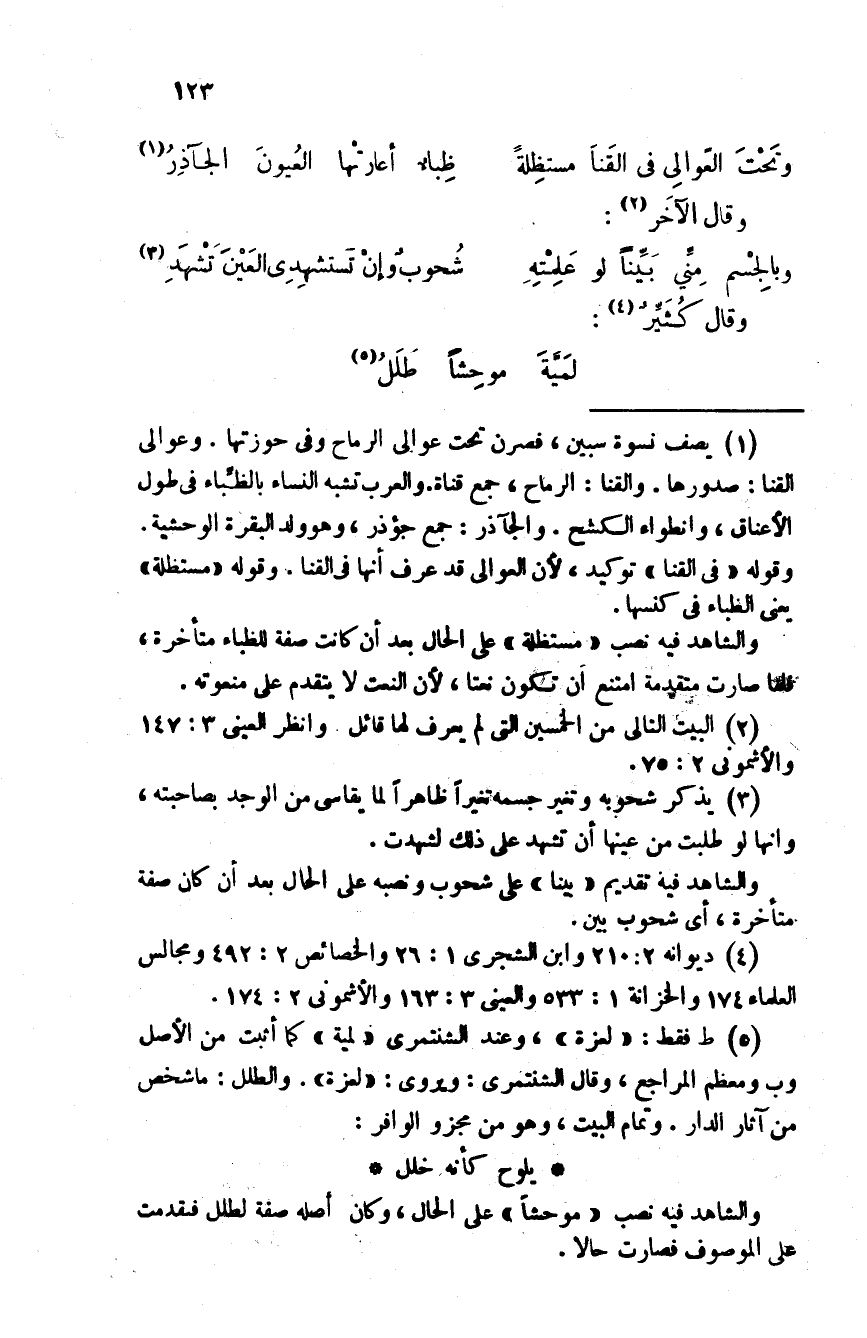 ١٢٣
وتَحْتَ العَوالِى فى القَنَا مستظِلَّةً ظِباءٌ أعارتْها العُيونَ الجَآذِرُ(١)
وقال الآخَر(٢) :
وبالجِسْمِ مِنِّي بَيِّناً لو عَلِمْتِهِ شُحوبٌ وإنْ تَستشهِدِى العَيْنَ تَشْهَدِ(٣)
وقال كُثَيِّرٌ(٤) :
لمَيَّةَ موحِشاً طَلَلُ(٥)
(١) يصف نسوة سبين ، فصرن تحت عوالى الرماح وفى حوزتها . وعوالى
القنا : صدورها . والقنا : الرماح ، جمع قناة. والعرب تشبه النساء بالظباء فى طول
الأعناق ، وانطواء الكشح . والجآذر : جمع جؤذر ، وهو ولد البقرة الوحشية.
وقوله « فى القنا » توكيد ، لأن العوالى قد عرف أنها فى القنا . وقوله «مستظلة»
يعنى الظباء فى كنسها .
والشاهد فيه نصب « مستظلة » على الحال بعد أن كانت صفة للظباء متأخرة ،
فلما صارت متقدمة امتنع أن تكون نعتا ، لأن النعت لا يتقدم على منعوته .
(٢) البيت التالى من الخمسين التى لم يعرف لها قائل . وانظر العينى ٣ : ١٤٧
والأشمونى ٢ : ٧٥.
(٣) يذكر شحوبه وتغير جسمه تغيراً ظاهراً لما يقاسى من الوجد بصاحبته ،
وانها لو طلبت من عينها أن تشهد على ذلك لشهدت .
والشاهد فيه تقديم « بينا » على شحوب ونصبه على الحال بعد أن كان صفة
متأخرة ، أى شحوب بين .
(٤) ديوانه ٢: ٢١٠ وابن الشجرى ١ : ٢٦ والخصائص ٢ : ٤٩٢ ومجالس
العلماء ١٧٤ والخزانة ١ : ٥٣٣ والعينى ٣ : ١٦٣ والأشمونى ٢ : ١٧٤ .
(٥) ط فقط : « لعزة » ، وعند الشنتمرى « لمية » كما أثبت من الأصل
وب ومعظم المراجع ، وقال الشنتمرى : ويروى : «لعزة» . والطلل : ماشخص
من آثار الدار . وتمام البيت ، وهو من مجزو الوافر :
* يلوح كأنه خلل *
والشاهد فيه نصب « موحشاً » على الحال ، وكان أصله صفة لطلل فىقدمت
على الموصوف فصارت حالا .